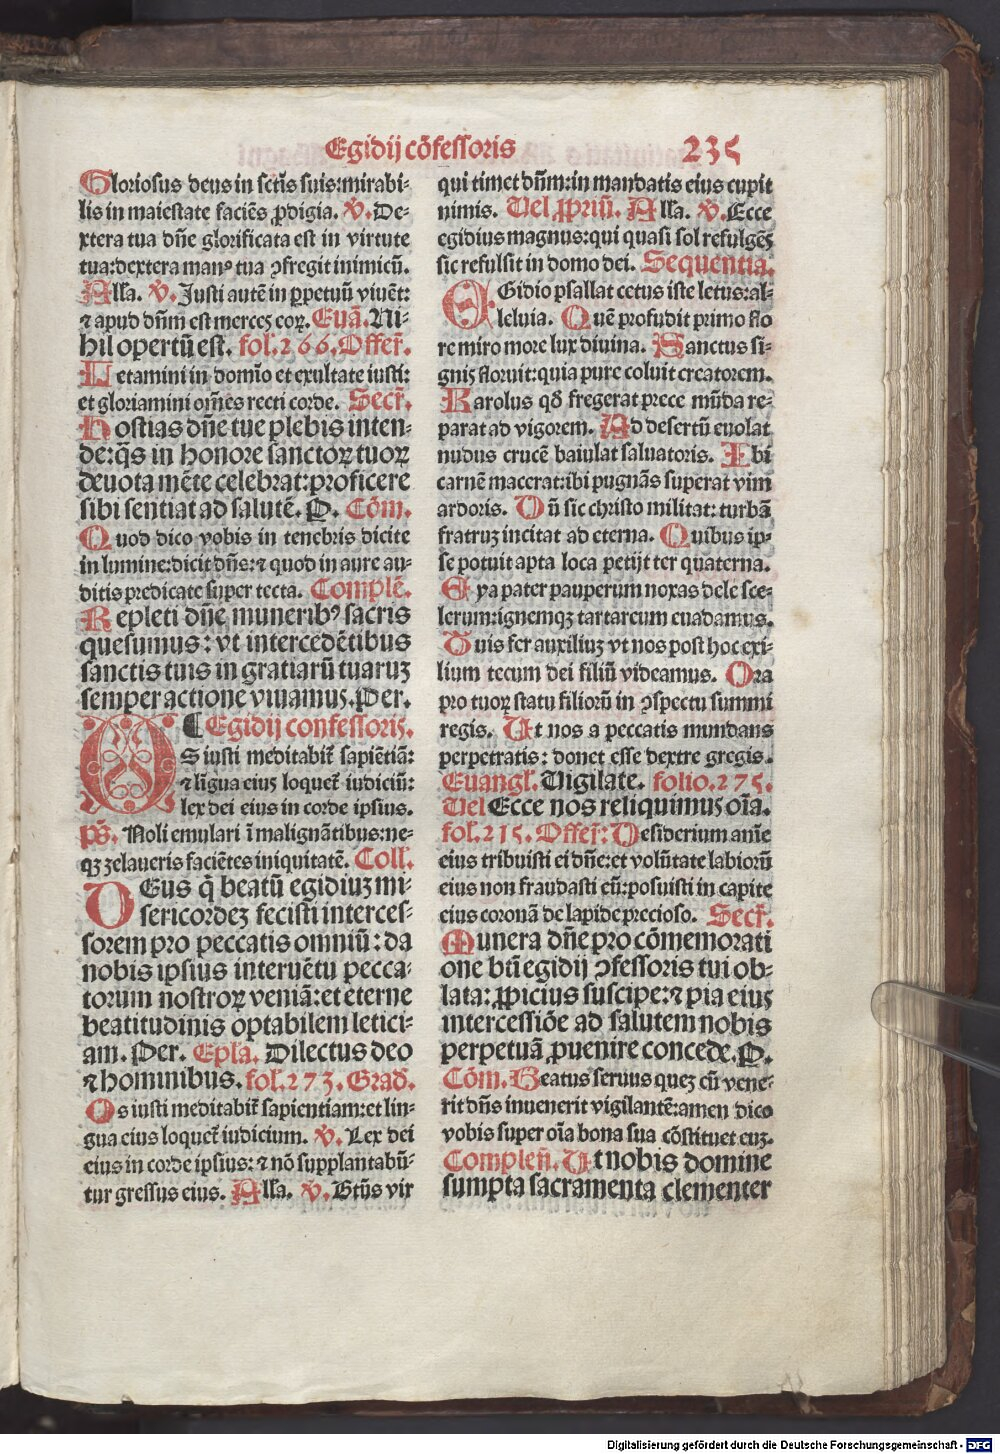 Egidij cōfessoris 235
Gloriosus deus in sctīs suis:mirabi-
lis in maiestate faciēs ꝓdigia. ℣. De-
xtera tua dn̄e glorificata est in virtute
tua:dextera manꝰ tua ꝯfregit inimicū.
Alla. ℣. Iusti autē in ꝑpetuū viuēt:
⁊ apud dn̄m est merces eoꝝ. Euā. Ni-
hil opertū est. fol. 266. Offer̄.
Letamini in domīo et exultate iusti:
et gloriamini om̄es recti corde. Secr̄.
Hostias dn̄e tue plebis inten-
de:q̄s in honore sanctoꝝ tuoꝝ
deuota mēte celebrat:proficere
sibi sentiat ad salutē. P. Cōm.
Quod dico vobis in tenebris dicite
in lumine:dicit dn̄s:⁊ quod in aure au-
ditis predicate super tecta. Complē.
Repleti dn̄e muneribꝰ sacris
quesumus: vt intercedētibus
sanctis tuis in gratiarū tuaruꝫ
semper actione viuamus. Per.
¶ Egidij confessoris.
OS iusti meditabit̄ sapiētiā:
⁊ līgua eius loquet̄ iudiciū:
lex dei eius in corde ipsius.
ps̄. Noli emulari ī malignātibus:ne-
qꝫ zelaueris faciētes iniquitatē. Coll̄.
DEus q̄ beatū egidiuꝫ mi-
sericordeꝫ fecisti interces-
sorem pro peccatis omniū: da
nobis ipsius interuētu pecca-
torum nostroꝝ veniā:et eterne
beatitudinis optabilem letici-
am. Per. Epl̄a. Dilectus deo
⁊ hominibus. fol. 273. Grad̄.
Os iusti meditabit̄ sapientiam:et lin-
gua eius loquet̄ iudicium. ℣. Lex dei
eius in corde ipsius: ⁊ nō supplantabū-
tur gressus eius. Alla. ℣. Bt̄us vir
qui timet dn̄m:in mandatis eius cupit
nimis. Vel ꝓpriū. Alla. ℣. Ecce
egidius magnus:qui quasi sol refulgēs
sic refulsit in domo dei. Sequentia.
EGidio psallat cetus iste letus:al-
leluia. Quē profudit primo flo
re miro more lux diuina. Sanctus si-
gnis floruit:quia pure coluit creatorem.
Karolus qd̄ fregerat prece mūda re-
parat ad vigorem. Ad desertū euolat
nudus crucē baiulat saluatoris. Ibi
carnē macerat:ibi pugnās superat vim
ardoris. Vn̄ sic christo militat: turbā
fratruꝫ incitat ad eterna. Quibus ip-
se potuit apta loca petijt ter quaterna.
Eya pater pauperum noxas dele sce-
lerum:ignemqꝫ tartareum euadamus.
Tuis fer auxiliuꝫ vt nos post hoc exi-
lium tecum dei filiū videamus. Ora
pro tuoꝝ statu filiorū in ꝯspectu summi
regis. Ut nos a peccatis mundans
perpetratis: donet esse dextre gregis.
Euangl̄. Vigilate. folio. 275.
Vel Ecce nos reliquimus oīa.
fol. 215. Offer̄: Desiderium anīe
eius tribuisti ei dn̄e:et volūtate labiorū
eius non fraudasti eū:posuisti in capite
eius coronā de lapide precioso. Secr̄.
Munera dn̄e pro cōmemorati
one btī egidij ꝯfessoris tui ob-
lata: ꝓpicius suscipe:⁊ pia eius
intercessiōe ad salutem nobis
perpetuā ꝓuenire concede. P.
Cōm. Beatus seruus queꝫ cū vene-
rit dn̄s inuenerit vigilantē:amen dico
vobis super oīa bona sua cōstituet euꝫ.
Complen̄. Ut nobis domine
sumpta sacramenta clementer
Digitalisierung gefördert durch die Deutsche Forschungsgemeinschaft - DFG